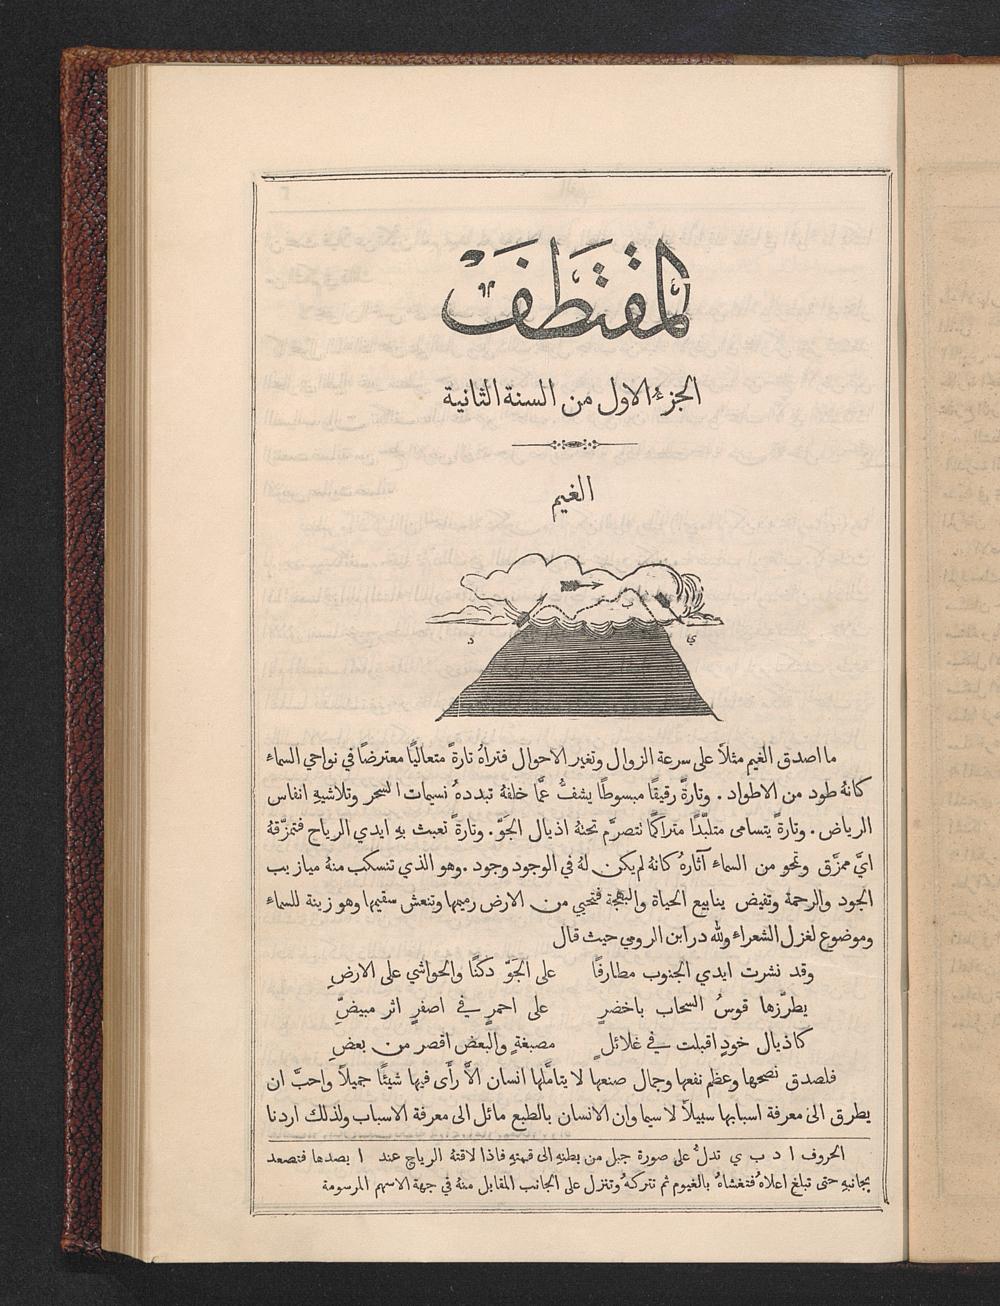 المقتطف
الجزء الاول من السنة الثانية
الغيم
د
ب
ي
ما اصدق الغيم مثلاً على سرعة الزوال وتغير الاحوال فتراهُ تارةً متعاليًا معترضًا في نواحي السماء
كانهُ طود من الاطواد . وتارةً رقيقًا مبسوطًا يشفُّ عمَّا خلفهُ تبددهُ نسيمات السحر وتلاشيهِ انفاس
الرياض . وتارةً يتسامى متلبّدًا متراكمًا تتصرَّم تحتهُ اذيال الجوّ. وتارةً تعبث بهِ ايدي الرياح فتمزّقهُ
ايَّ ممزَّق وتمحو من السماء آثارهُ كانهُ لم يكن لهُ في الوجود وجود . وهو الذي تنسكب منهُ ميازيب
الجود والرحمة وتفيض ينابيع الحياة والبهجة فتحيي من الارض رميمها وتنعش سقيمها وهو زينة للسماء
وموضوع لغزل الشعراء ولله در ابن الرومي حيث قال
وقد نشرت ايدي الجنوب مطارفًا على الجوّ دكنًا والحواشي على الارضِ
يطرزها قوسُ السحاب باخضرٍ على احمرٍ في اصفرٍ اثر مبيضِّ
كاذيال خودٍ اقبلت في غلائلٍ مصبغةٍ والبعض اقصر من بعضِ
فلصدق نصحها وعظم نفعها وجمال صنعها لا يتاملها انسان الاَّ رأى فيها شيئًا جميلاً واحبَّ ان
يطرق الى معرفة اسبابها سبيلاً لا سيما وان الانسان بالطبع مائل الى معرفة الاسباب ولذلك اردنا
الحروف ا د ب ي تدلُّ على صورة جبل من بطنهِ الى قمتهِ فاذا لاقتهُ الرياح عند ا بصدها فتصعد
بجانبهِ حتى تبلغ اعلاهُ فتغشاهُ بالغيوم ثم تتركهُ وتنزل على الجانب المقابل منهُ في جهة الاسهم المرسومة